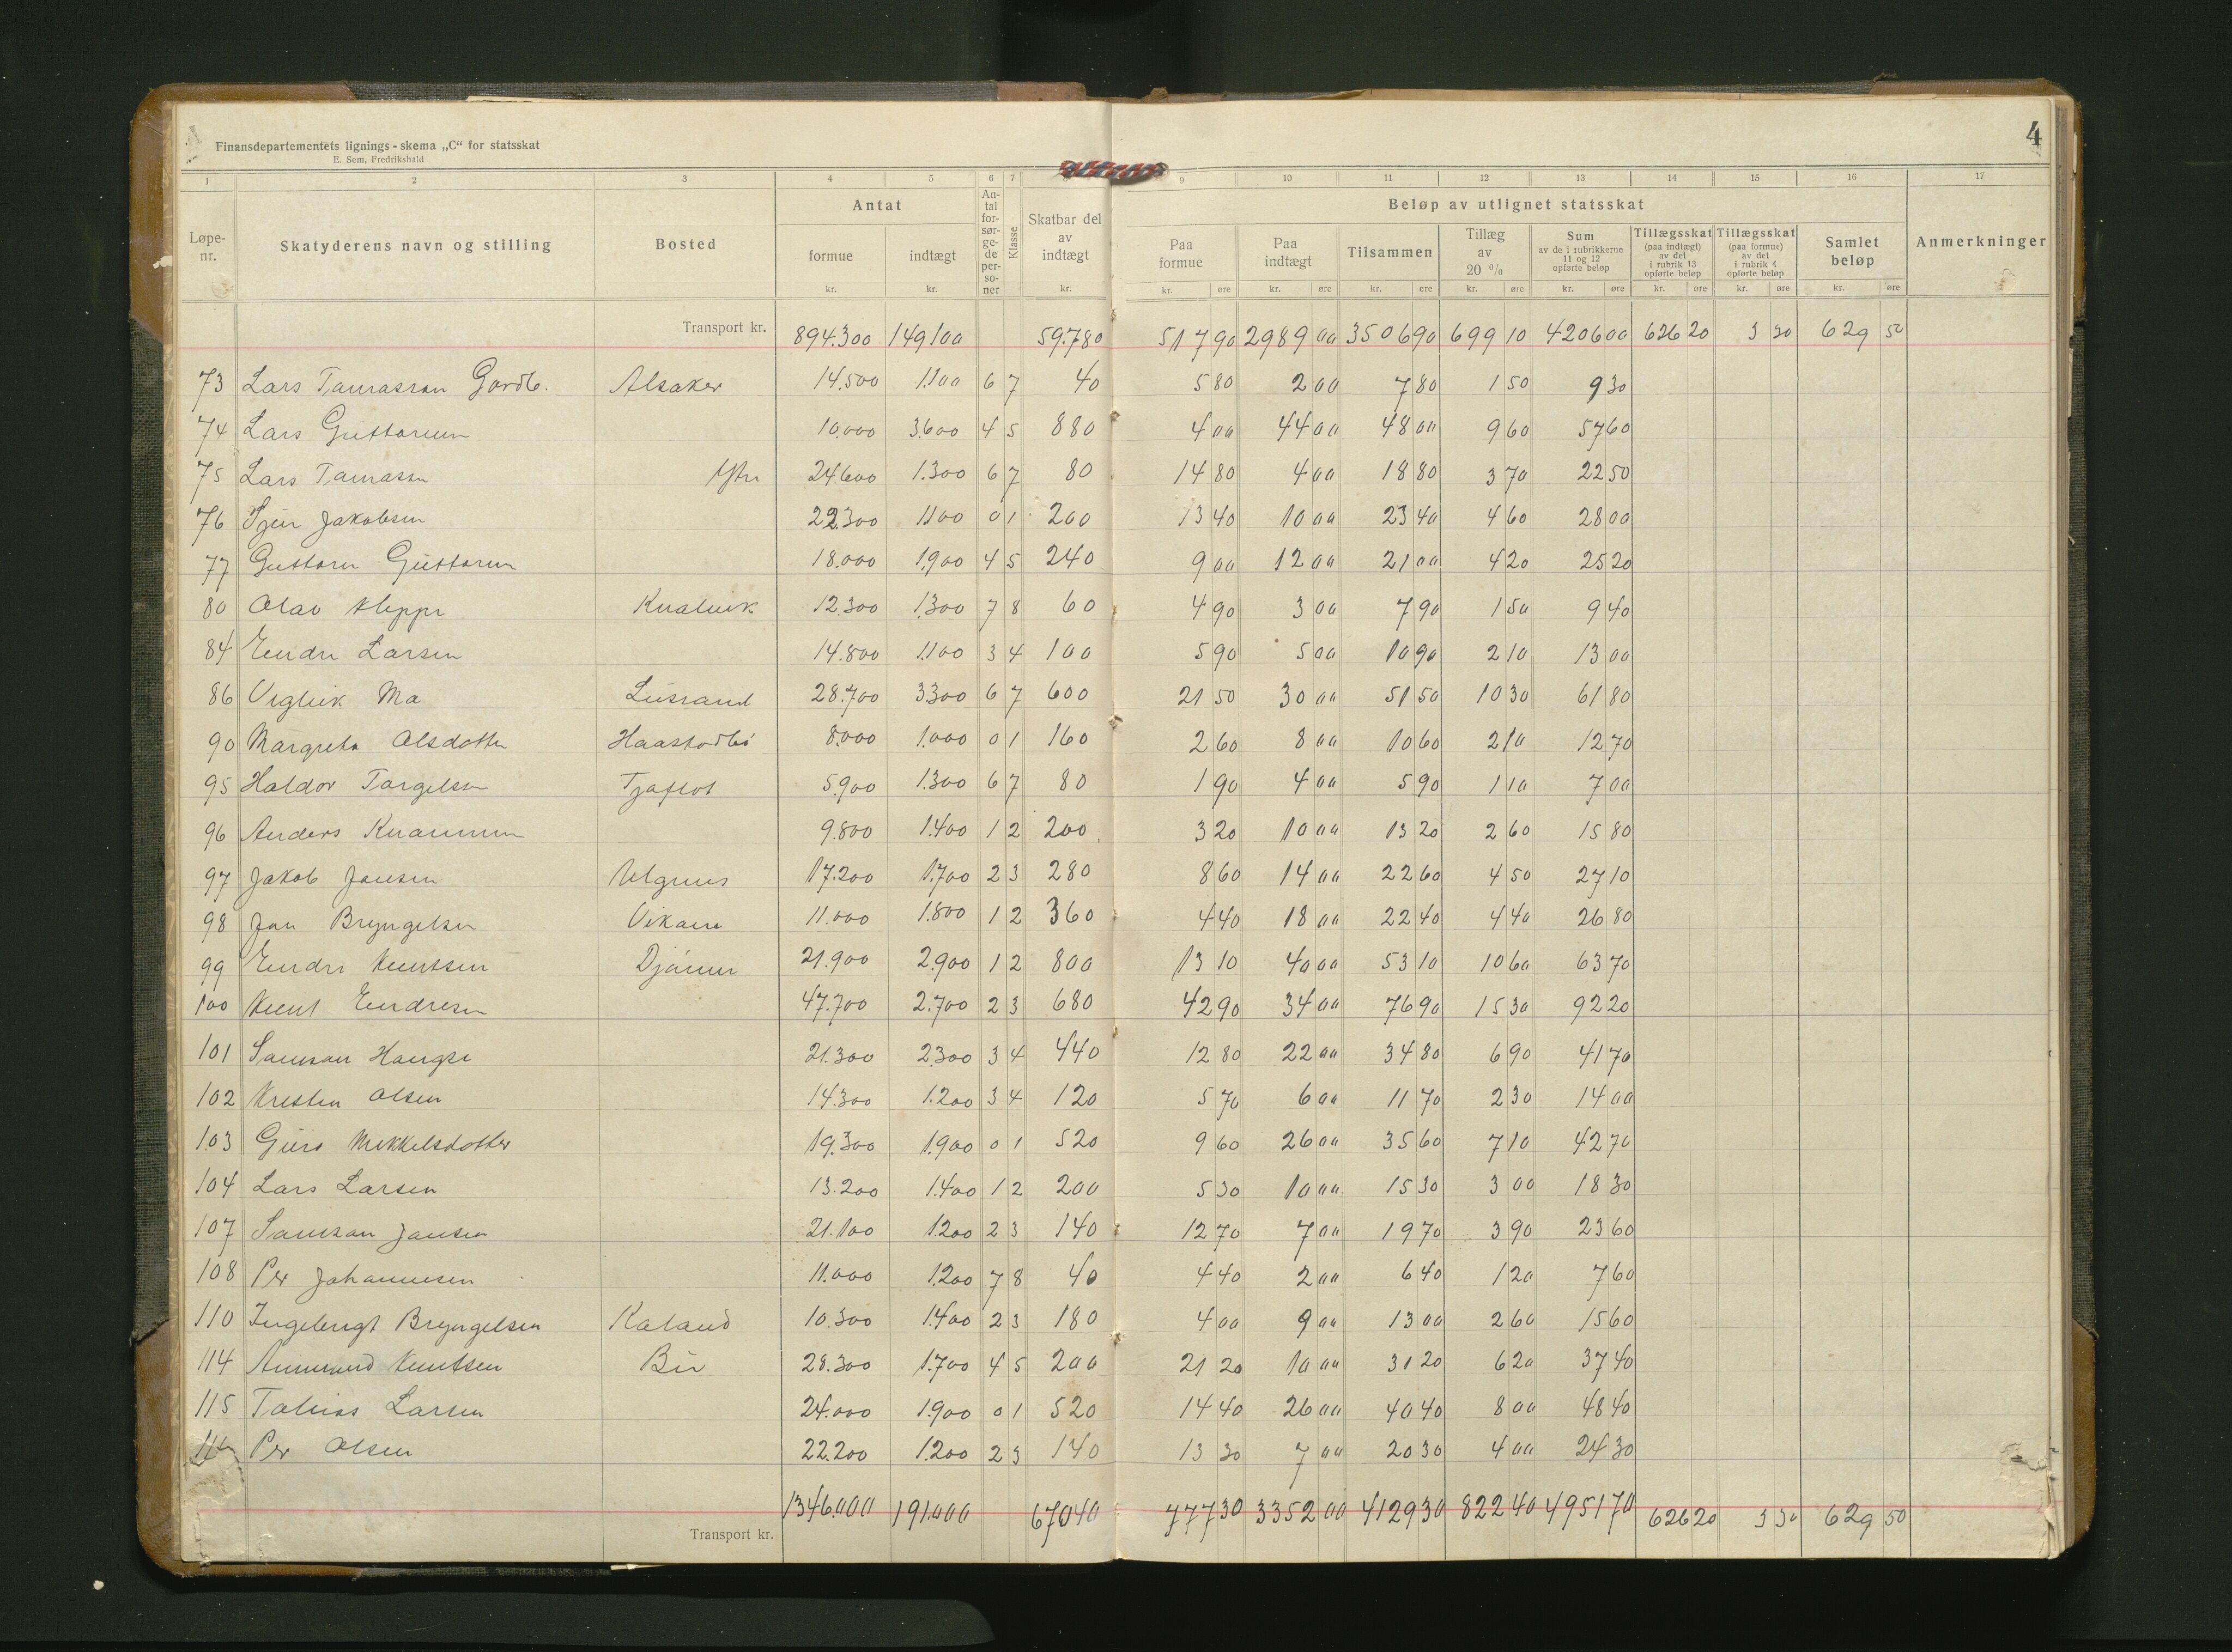 4
Finansdepartementets lignings-skema „C“ for statsskat
E. Sem, Fredrikshald
1 2 3 4 5 6 7 8 9 10 11 12 13 14 15 16 17
Løpe-nr. Skatyderens navn og stilling Bosted Antat formue kr. indtægt kr. Antal forsørgede personer Klasse Skatbar del av indtægt kr. Beløp av utlignet statsskat Paa formue kr. øre Paa indtægt kr. øre Tilsammen kr. øre Tillæg av 20 % kr. øre Sum av de i rubrikkerne 11 og 12 opførte beløp kr. øre Tillægsskat (paa indtægt) av det i rubrik 13 opførte beløp kr. øre Tillægsskat (paa formue) av det i rubrik 4 opførte beløp kr. øre Samlet beløp kr. øre Anmerkninger
Transport kr. 894.300 149100 59.780 517 90 2989 00 3506 90 699 10 4206 00 626 20 3 30 629 50
73 Lars Alsaker 14.500 1.100 6 7 40 5 80 2 00 7 80 1 50 9 30
74 Lars 10.000 3.600 4 5 880 4 00 44 00 48 00 9 60 57 60
75 Lars 24.600 1.300 6 7 80 14 80 4 00 18 80 3 70 22 50
76 Jakobsen 22.300 1.100 0 1 200 13 40 10 00 23 40 4 60 28 00
77 18.000 1.900 4 5 240 9 00 12 00 21 00 4 20 25 20
80 Olav 12.300 1.300 7 8 60 4 90 3 00 7 90 1 50 9 40
84 Endre Larsen 14.800 1.100 3 4 100 5 90 5 00 10 90 2 10 13 00
86 Vigleik Ma 28.700 3.300 6 7 600 21 50 30 00 51 50 10 30 61 80
90 Margreta Olsdotter 8.000 1.000 0 1 160 2 60 8 00 10 60 2 10 12 70
95 Haldor Torgelsen Tjoflot 5.900 1.300 6 7 80 1 90 4 00 5 90 1 10 7 00
96 Anders 9.800 1.400 1 2 200 3 20 10 00 13 20 2 60 15 80
97 Jakob Jonsen Ulgenes 17.200 1.700 2 3 280 8 60 14 00 22 60 4 50 27 10
98 Jon Bryngelsen Vikane 11.000 1.800 1 2 360 4 40 18 00 22 40 4 40 26 80
99 Endre Knutsen Djønne 21.900 2.900 1 2 800 13 10 40 00 53 10 10 60 63 70
100 Knut Endresen 47.700 2.700 2 3 680 42 90 34 00 76 90 15 30 92 20
101 Samson Haugse 21.300 2.300 3 4 440 12 80 22 00 34 80 6 90 41 70
102 Kresten Olsen 14.300 1.200 3 4 120 5 70 6 00 11 70 2 30 14 00
103 Guro Mikkelsdotter 19.300 1.900 0 1 520 9 60 26 00 35 60 7 10 42 70
104 Lars Larsen 13.200 1.400 1 2 200 5 30 10 00 15 30 3 00 18 30
107 Samson Jonsen 21.100 1.200 2 3 140 12 70 7 00 19 70 3 90 23 60
108 Per Johannesen 11.000 1.200 7 8 40 4 40 2 00 6 40 1 20 7 60
110 Ingebrigt Bryngelsen Kaland 10.300 1.400 2 3 180 4 00 9 00 13 00 2 60 15 60
114 Ammund Knutsen Bu 28.300 1.700 4 5 200 21 20 10 00 31 20 6 20 37 40
115 Tobias Larsen 24.000 1.900 0 1 520 14 40 26 00 40 40 8 00 48 40
Per Olsen 22.200 1.200 2 3 140 13 30 7 00 20 30 4 00 24 30
Transport kr. 1346.000 191.000 67040 777 30 3352 00 4129 30 822 40 4951 70 626 20 3 30 629 50